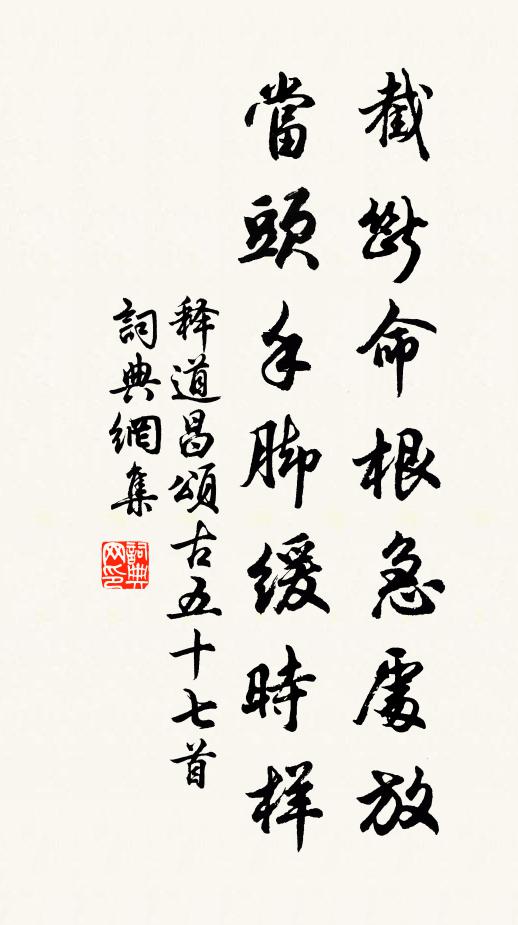 截斷命根急處放
當頭手脚緩時樣
释道昌頌古五十七首
詞典網集
詞典
网印